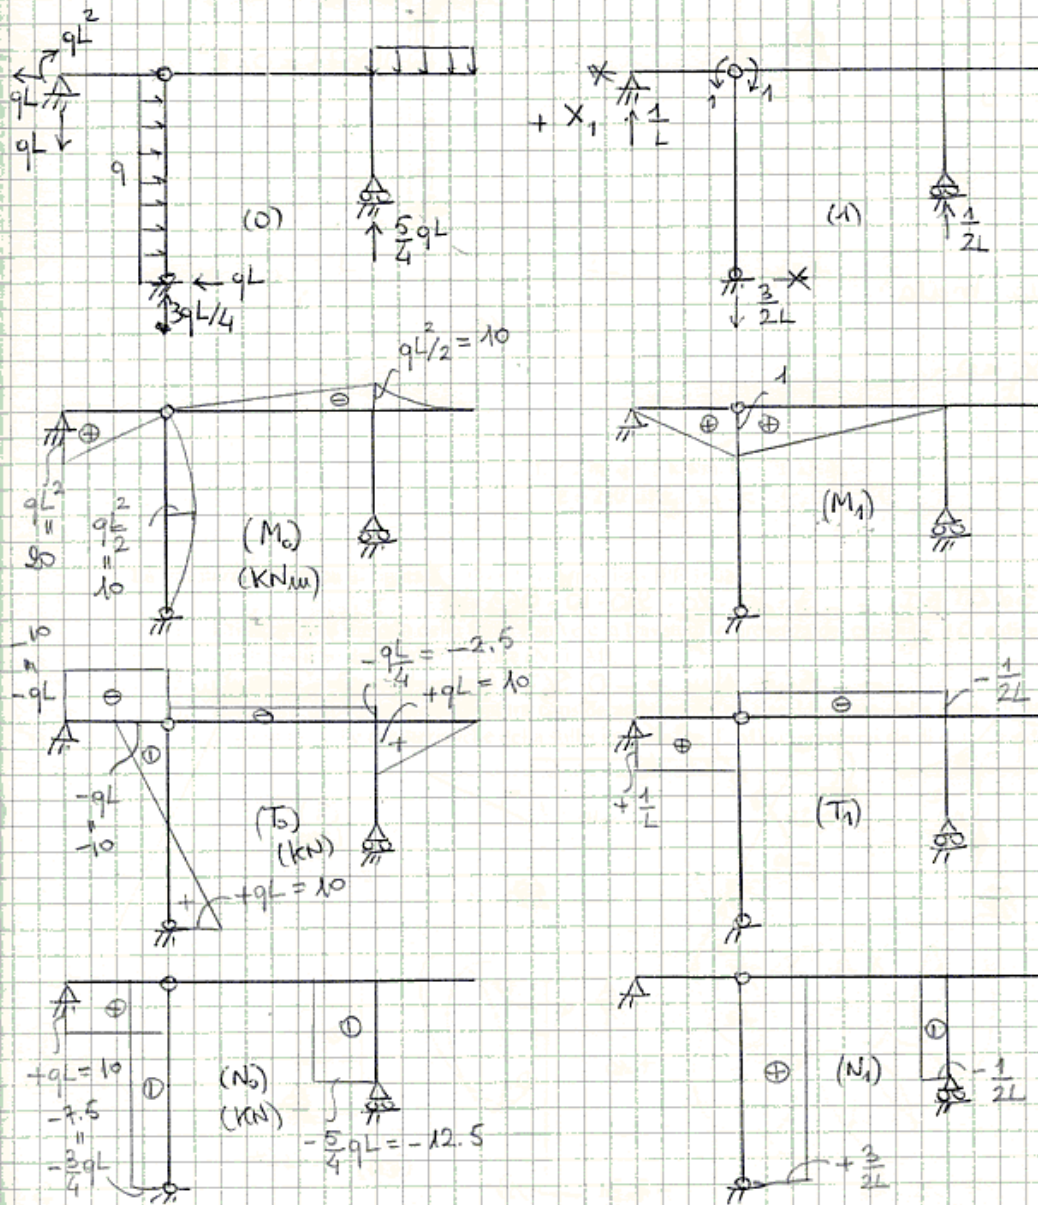 qL²
qL
qL
q
(0)
5/4 qL
qL
3qL/4
+ X₁
1/L
1
1
(1)
1/2L
3/2L
qL²/2 = 10
⊖
⊕
qL² = 20
qL²/2 = 10
(M₀)
(KNm)
1
⊕
⊕
(M₁)
-10 = -qL
⊖
-qL/4 = -2.5
+qL = 10
⊖
+
-qL = -10
(T₀)
(KN)
+
+qL = 10
-1/2L
⊖
⊕
+1/L
(T₁)
⊕
+qL = 10
-7.5 = -3/4 qL
(N₀)
(KN)
-5/4 qL = -12.5
⊕
(N₁)
-1/2L
+3/2L